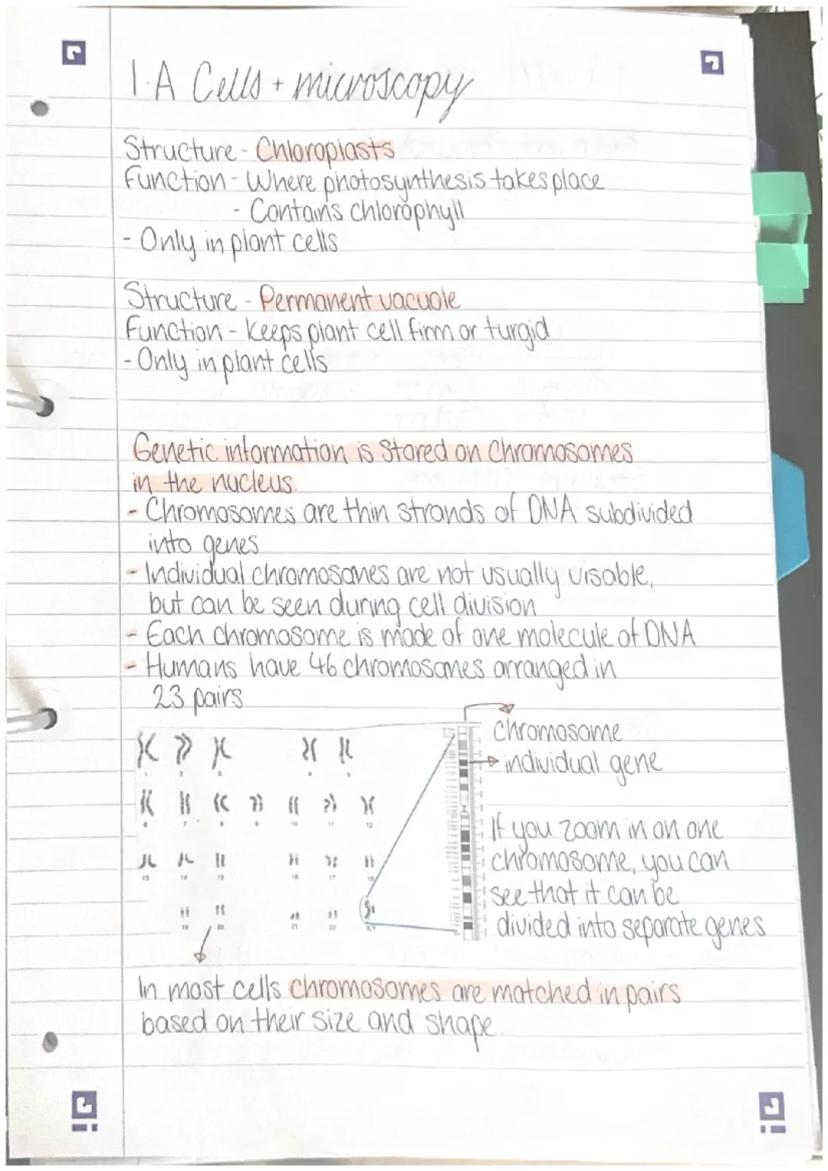 1.A Cells + microscopy
Structure - Chloroplasts
Function - Where photosynthesis takes place
- Contains chlorophyll
- Only in plant cells
Structure - Permanent vacuole
Function - Keeps plant cell firm or turgid
- Only in plant cells
Genetic information is stored on chromosomes
in the nucleus.
- Chromosomes are thin strands of DNA subdivided
into genes
- Individual chromosomes are not usually visable,
but can be seen during cell division
- Each chromosome is made of one molecule of DNA
- Humans have 46 chromosomes arranged in
23 pairs
chromosome
individual gene
1 2 3 4 5
6 7 8 9 10 11 12
13 14 15 16 17 18
19 20 21 22 X,Y
If you zoom in on one
chromosome, you can
see that it can be
divided into separate genes
In most cells chromosomes are matched in pairs
based on their size and shape.